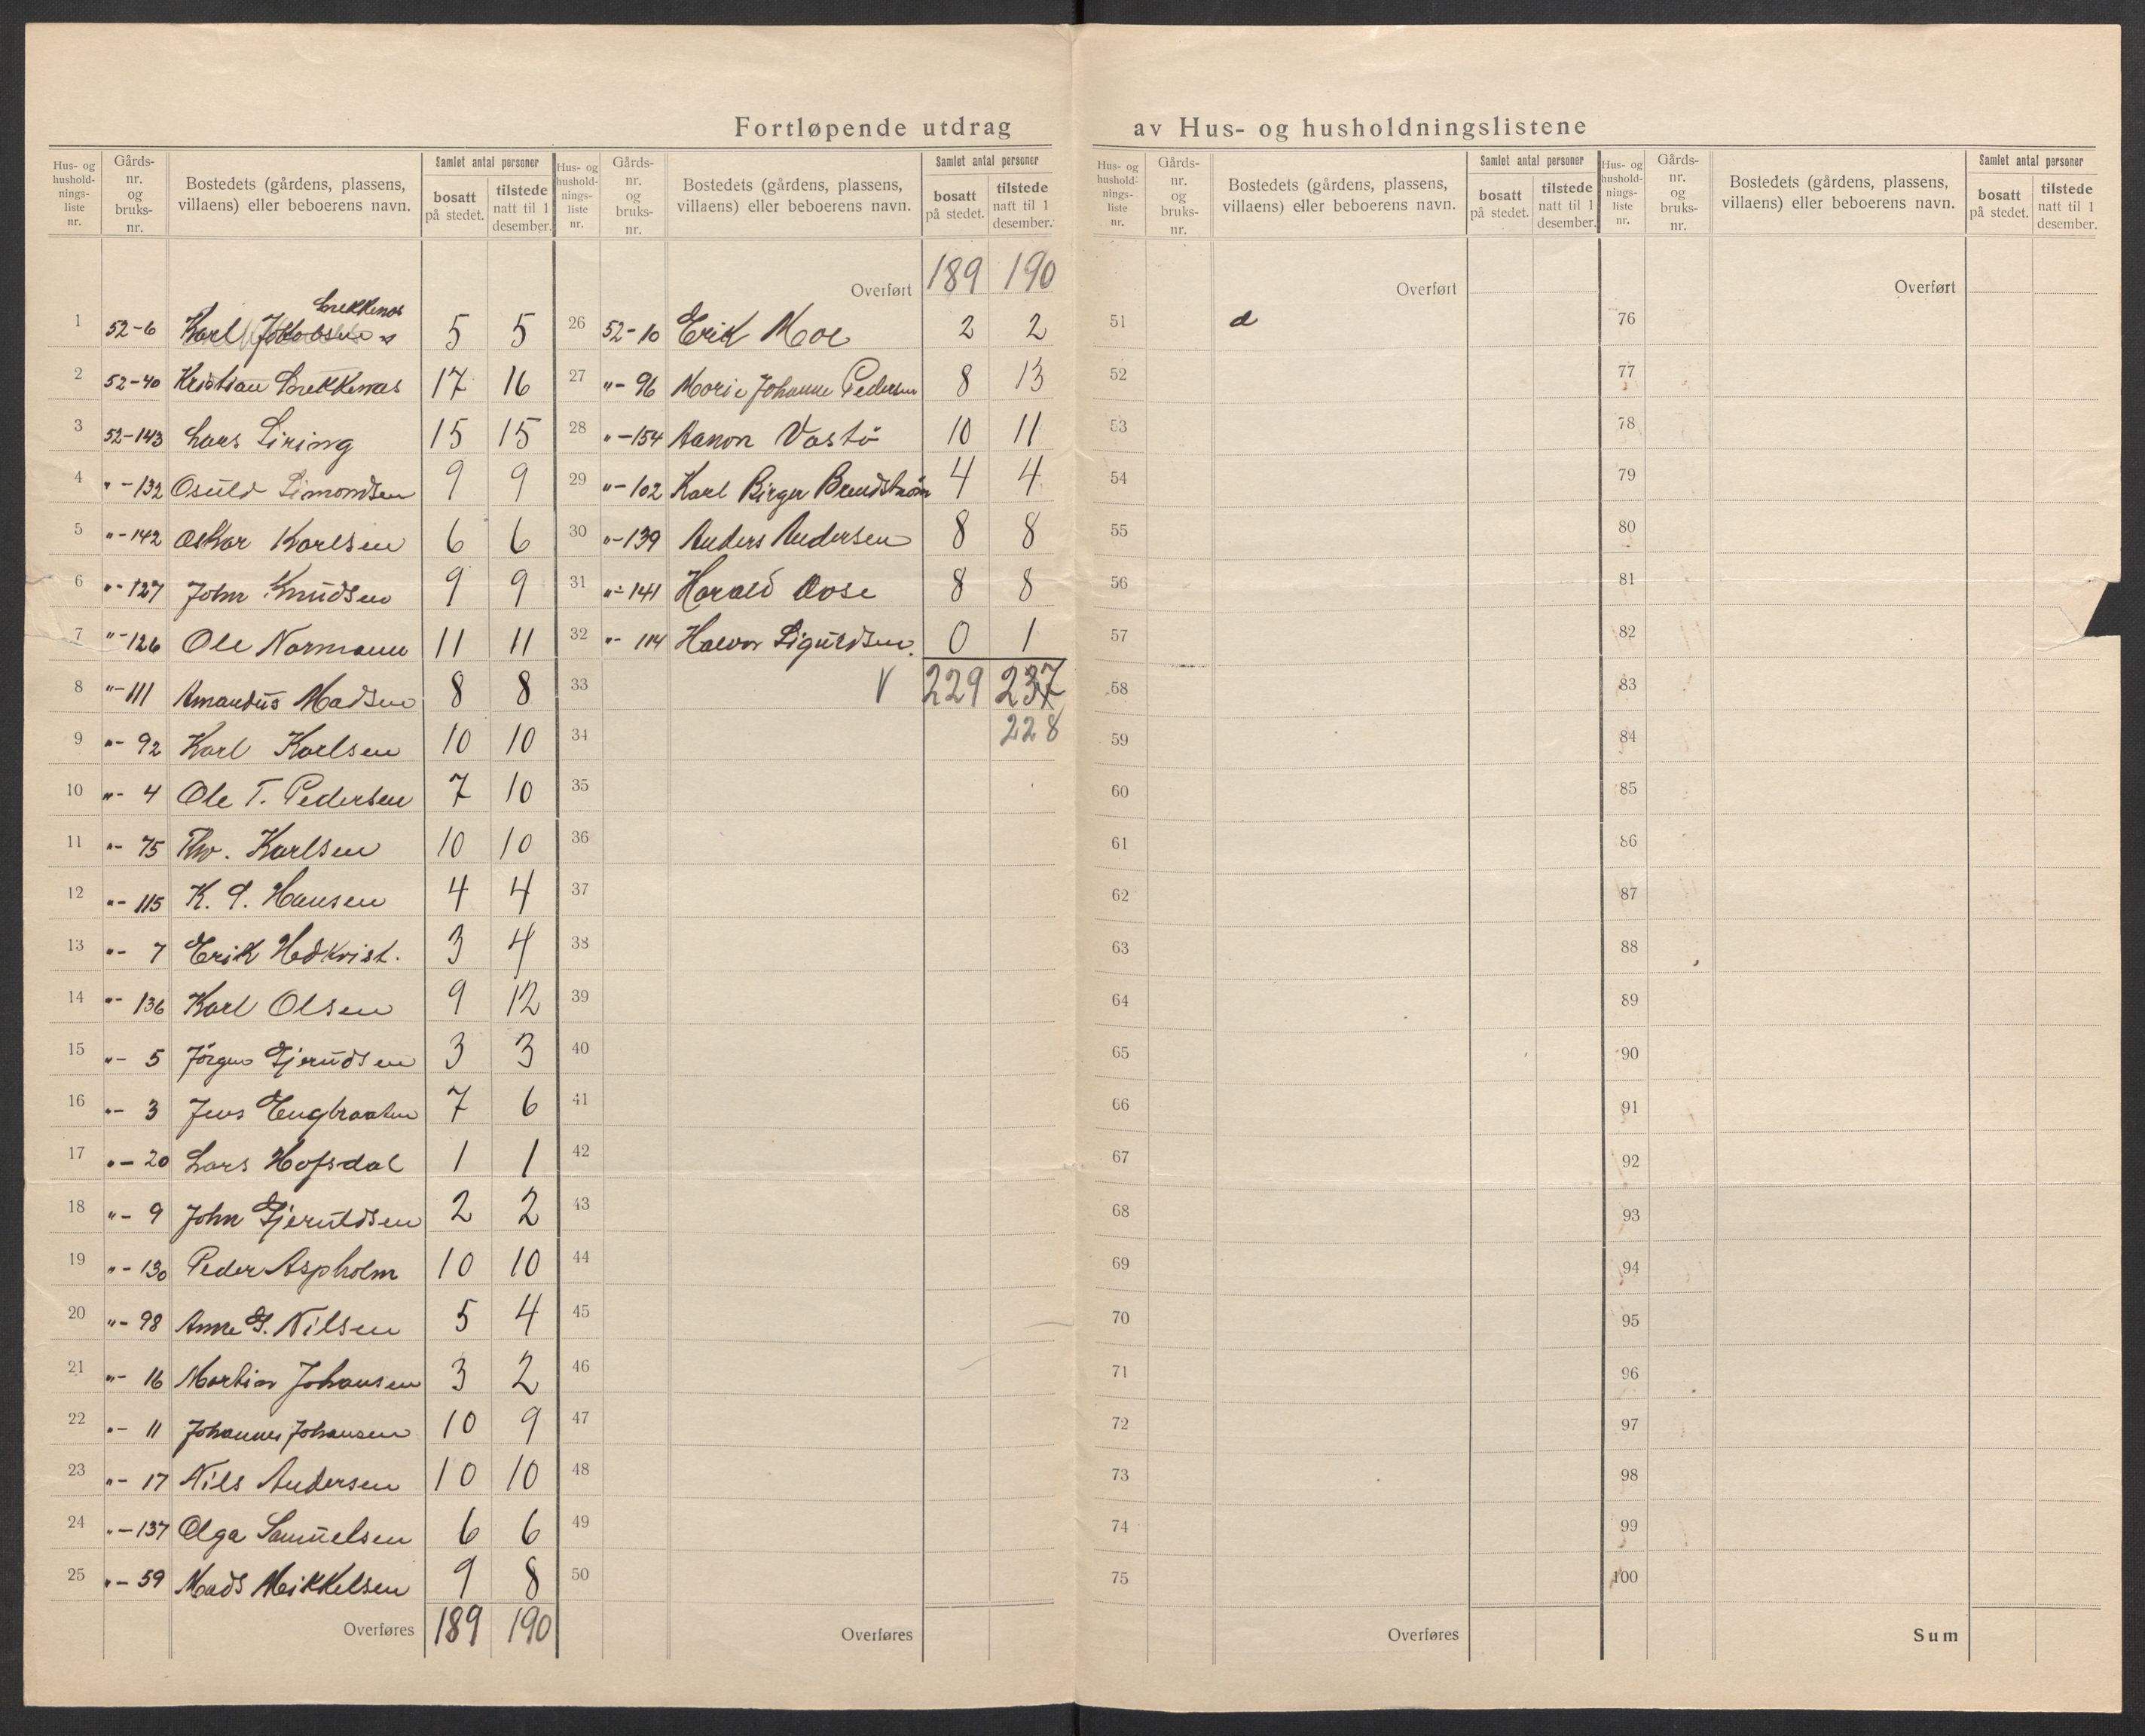 Fortløpende utdrag av Hus- og husholdningslistene
Hus- og hushold-nings-liste nr. | Gårds-nr. og bruks-nr. | Bostedets (gårdens, plassens, villaens) eller beboerens navn. | Samlet antal personer | bosatt på stedet. | tilstede natt til 1 desember.
1 52-6 Karl Jakobsen Snekkenæs 5 5
2 52-40 Kristian Snekkenæs 17 16
3 52-143 Lars Siring 15 15
4 "-132 Osuld Simonsen 9 9
5 "-142 Oskar Karlsen 6 6
6 "-127 John Knudsen 9 9
7 "-126 Ole Normann 11 11
8 "-111 Amandus Madsen 8 8
9 "- 92 Karl Karlsen 10 10
10 "- 4 Ole T. Pedersen 7 10
11 "- 75 Thv. Karlsen 10 10
12 "- 115 K. P. Hansen 4 4
13 "- 7 Erik Hedkvist. 3 4
14 "- 136 Karl Olsen 9 12
15 "- 5 Jörgen Gjerudsen 3 3
16 "- 3 Jens Engbraaten 7 6
17 "- 20 Lars Hofsdal 1 1
18 "- 9 John Gjeruldsen 2 2
19 "- 130 Peder Aspholm 10 10
20 "- 98 Anne G. Nilsen 5 4
21 "- 16 Martin Johansen 3 2
22 "- 11 Johannes Johansen 10 9
23 "- 17 Nils Andersen 10 10
24 "-137 Olga Samuelsen 6 6
25 "- 59 Mads Mikkelsen 9 8
Overføres 189 190
Hus- og hushold-nings-liste nr. | Gårds-nr. og bruks-nr. | Bostedets (gårdens, plassens, villaens) eller beboerens navn. | Samlet antal personer | bosatt på stedet. | tilstede natt til 1 desember.
Overført 189 190
26 52-10 Erik Moe 2 2
27 "- 96 Marie Johanne Pedersen 8 13
28 "-154 Aanon Vastö 10 11
29 "-102 Karl Birger Brendström 4 4
30 "-139 Anders Andersen 8 8
31 "-141 Harald Aase 8 8
32 "- 114 Halvor Sigurdsen. 0 1
33 V 229 237
34 228
35
36
37
38
39
40
41
42
43
44
45
46
47
48
49
50
Overføres
Hus- og hushold-nings-liste nr. | Gårds-nr. og bruks-nr. | Bostedets (gårdens, plassens, villaens) eller beboerens navn. | Samlet antal personer | bosatt på stedet. | tilstede natt til 1 desember.
Overført
51
52
53
54
55
56
57
58
59
60
61
62
63
64
65
66
67
68
69
70
71
72
73
74
75
Overføres
Hus- og hushold-nings-liste nr. | Gårds-nr. og bruks-nr. | Bostedets (gårdens, plassens, villaens) eller beboerens navn. | Samlet antal personer | bosatt på stedet. | tilstede natt til 1 desember.
Overført
76
77
78
79
80
81
82
83
84
85
86
87
88
89
90
91
92
93
94
95
96
97
98
99
100
Sum